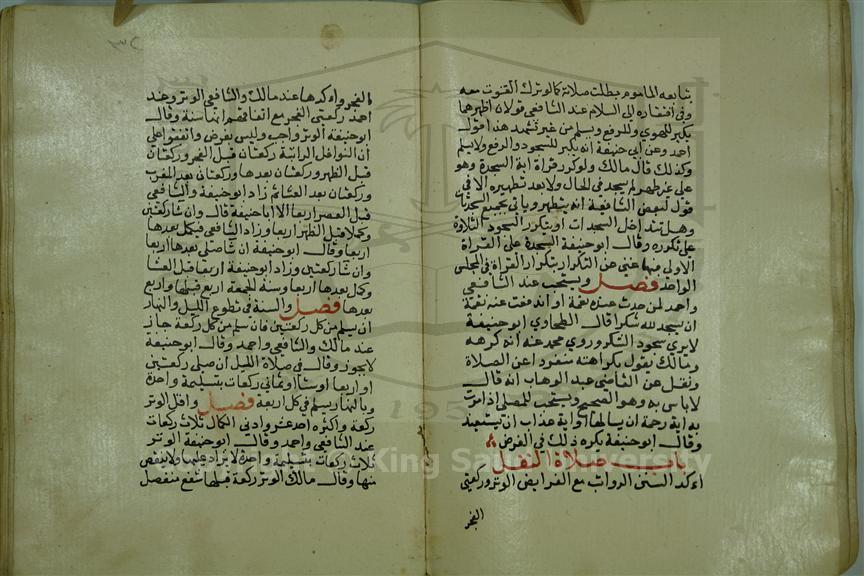 يتابعه الماموم بطلت صلاته كما لو ترك القنوت معه
وفي افتقاره الى السلام عند الشافعي قولان اظهرهما
يكبر للهوي وللرفع ويسلم من غير تشهد هذا قول
احمد وعن ابي حنيفة انه يكبر للسجود والرفع ولا يسلم
وكذلك قال مالك ولو كرر قراة اية السجدة وهو
على غير طهر لم يسجد في الحال ولا بعد تطهيره الا في
قول لبعض الشافعية انه يتطهر وياتي بجميع السجدات
وهل تتداخل السجدات او يتكرر السجود التلاوة
على تكرره وقال ابو حنيفة السجدة على القراة
الاولى منها تغني عن التكرار بتكرار القراة في المجلس
الواحد فصل ويستحب عند الشافعي
واحمد لمن حدث عنده نعمة او اندفعت عنه نقمة
ان يسجد لله شكرا قال الطحاوي ابو حنيفة
لا يرى سجود الشكر وروى محمد عنه انه كرهه
ومالك يقول بكراهته منفردا عن الصلاة
ونقل عن القاضي عبد الوهاب انه قال
لا باس به وهو الصحيح ويستحب للمصلي اذا مرت
به اية رحمة ان يسالها او اية عذاب ان يستعيذ
وقال ابو حنيفة يكره ذلك في الفرض
باب صلاة النفل
اكد السنن الرواتب مع الفرايض الوتر وركعتي
الفجر
الفجر واكدها عند مالك والشافعي الوتر وعند
احمد ركعتي الفجر مع اتفاقهم انها سنة وقال
ابو حنيفة الوتر واجب وليس بفرض واتفقوا على
أن النوافل الراتبة ركعتان قبل الفجر وركعتان
قبل الظهر وركعتان بعدها وركعتان بعد المغرب
وركعتان بعد العشا ثم زاد ابو حنيفة والشافعي
قبل العصر اربعا الا ان ابا حنيفة قال وان شا ركعتين
وكملا قبل الظهر اربعا وزاد الشافعي فكمل بعدها
اربعا وقال ابو حنيفة ان شا صلى بعدها اربعا
وان شا ركعتين وزاد ابو حنيفة اربعا قبل العشا
وكمل بعدها اربعا وسنة الجمعة اربع قبلها واربع
بعدها فصل والسنة في تطوع الليل والنهار
ان يسلم من كل ركعتين فان سلم من كل ركعة جاز
عند مالك والشافعي واحمد وقال ابو حنيفة
لا يجوز وقال في صلاة الليل ان صلى ركعتين
او اربعا او ستا او ثماني ركعات بتسليمة واحدة
وبالنهار يسلم في كل اربعة فصل واقل الوتر
ركعة واكثره احد عشر وادنى الكمال ثلاث ركعات
عند الشافعي واحمد وقال ابو حنيفة الوتر
ثلاث ركعات بتسليمة واحدة لا يزاد عليها ولا ينقص
منها وقال مالك الوتر ركعة قبلها شفع منفصل